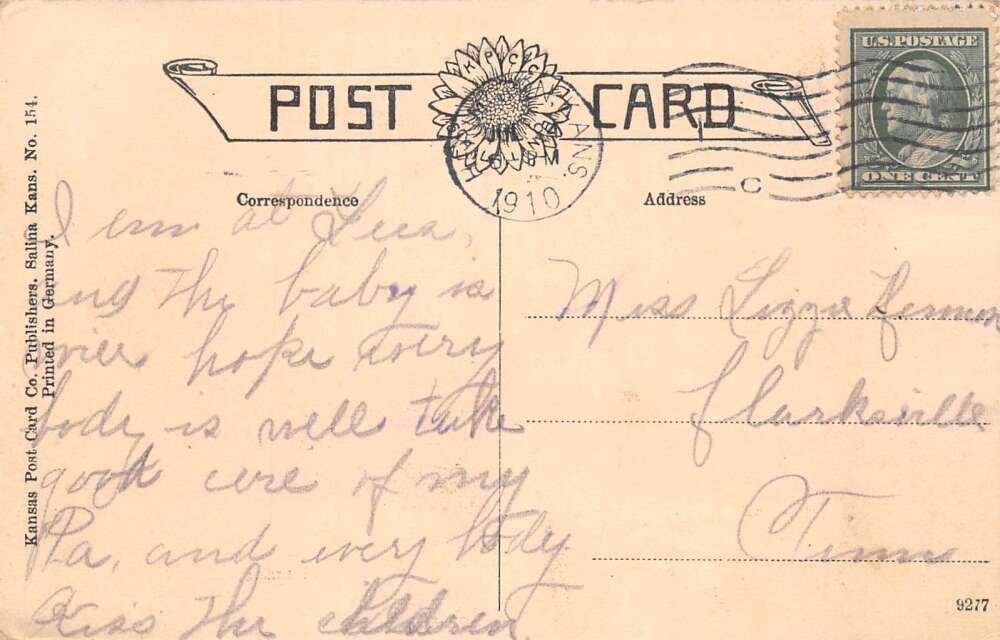 POST CARD
U.S. POSTAGE
ONE CENT
KANS.
1910
C
Correspondence
Address
I am at
and the baby is
well hope every
body is well take
good care of my
Pa, and every body
Kiss the children
Miss Lizzie
Clarksville
Tenn
Kansas Post Card Co. Publishers. Salina Kans. No. 154.
Printed in Germany.
9277